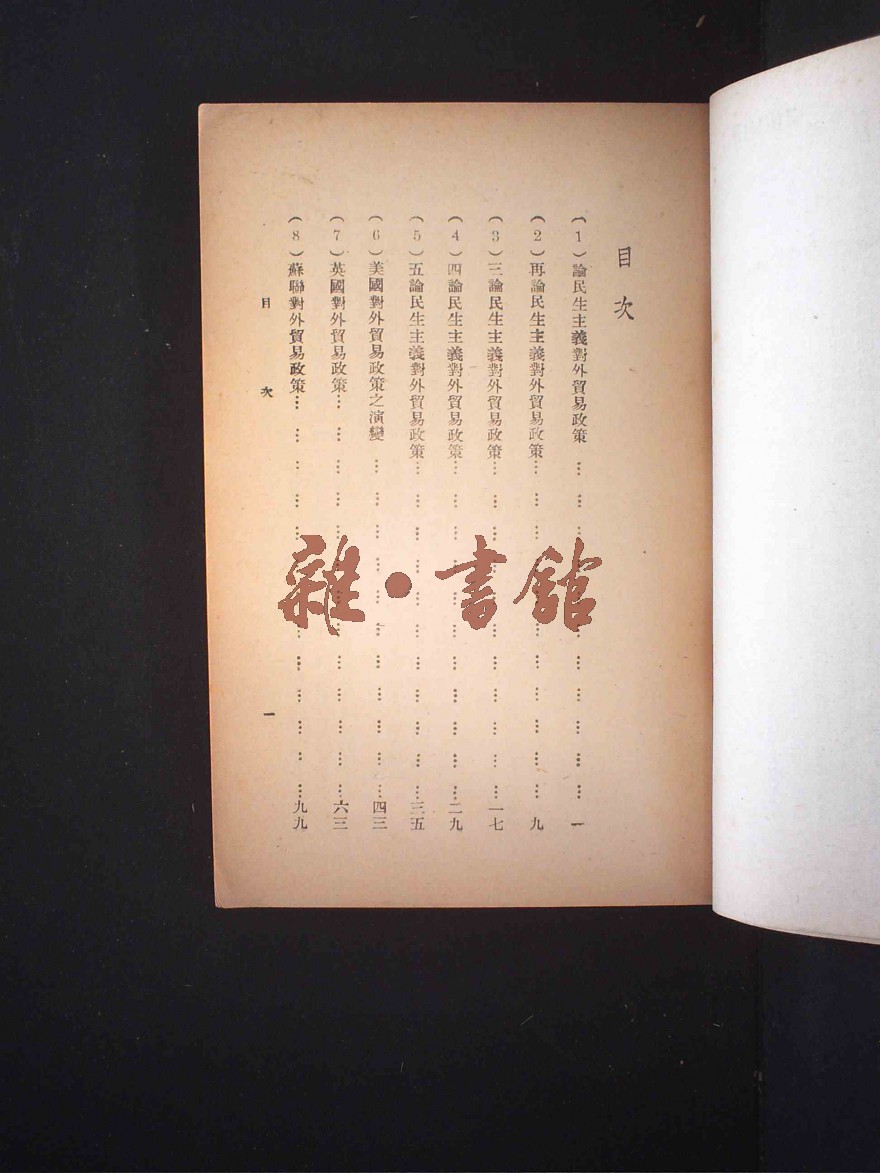 目次
(1)論民生主義對外貿易政策 … … … … … … … … … 一
(2)再論民生主義對外貿易政策… … … … … … … … … 九
(3)三論民生主義對外貿易政策… … … … … … … … … 一七
(4)四論民生主義對外貿易政策… … … … … … … … … 二九
(5)五論民生主義對外貿易政策… … … … … … … … … 三五
(6)美國對外貿易政策之演變 … … … … … … … … … … 四三
(7)英國對外貿易政策… … … … … … … … … … … … 六三
(8)蘇聯對外貿易政策… … … … … … … … … … … … 九九
目次 一
雜·書館